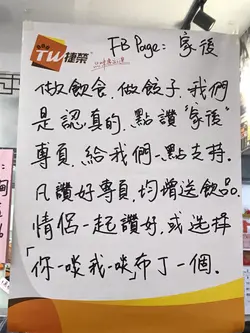 TW捷榮
FB Page: 家後
做飲食、做餃子、我們
是認真的，點讚"家後"
專頁，給我們一點支持。
凡讚好專頁，均增送飲品。
情侶一起讚好，或选择
「你一啖我一啖」布丁一個。